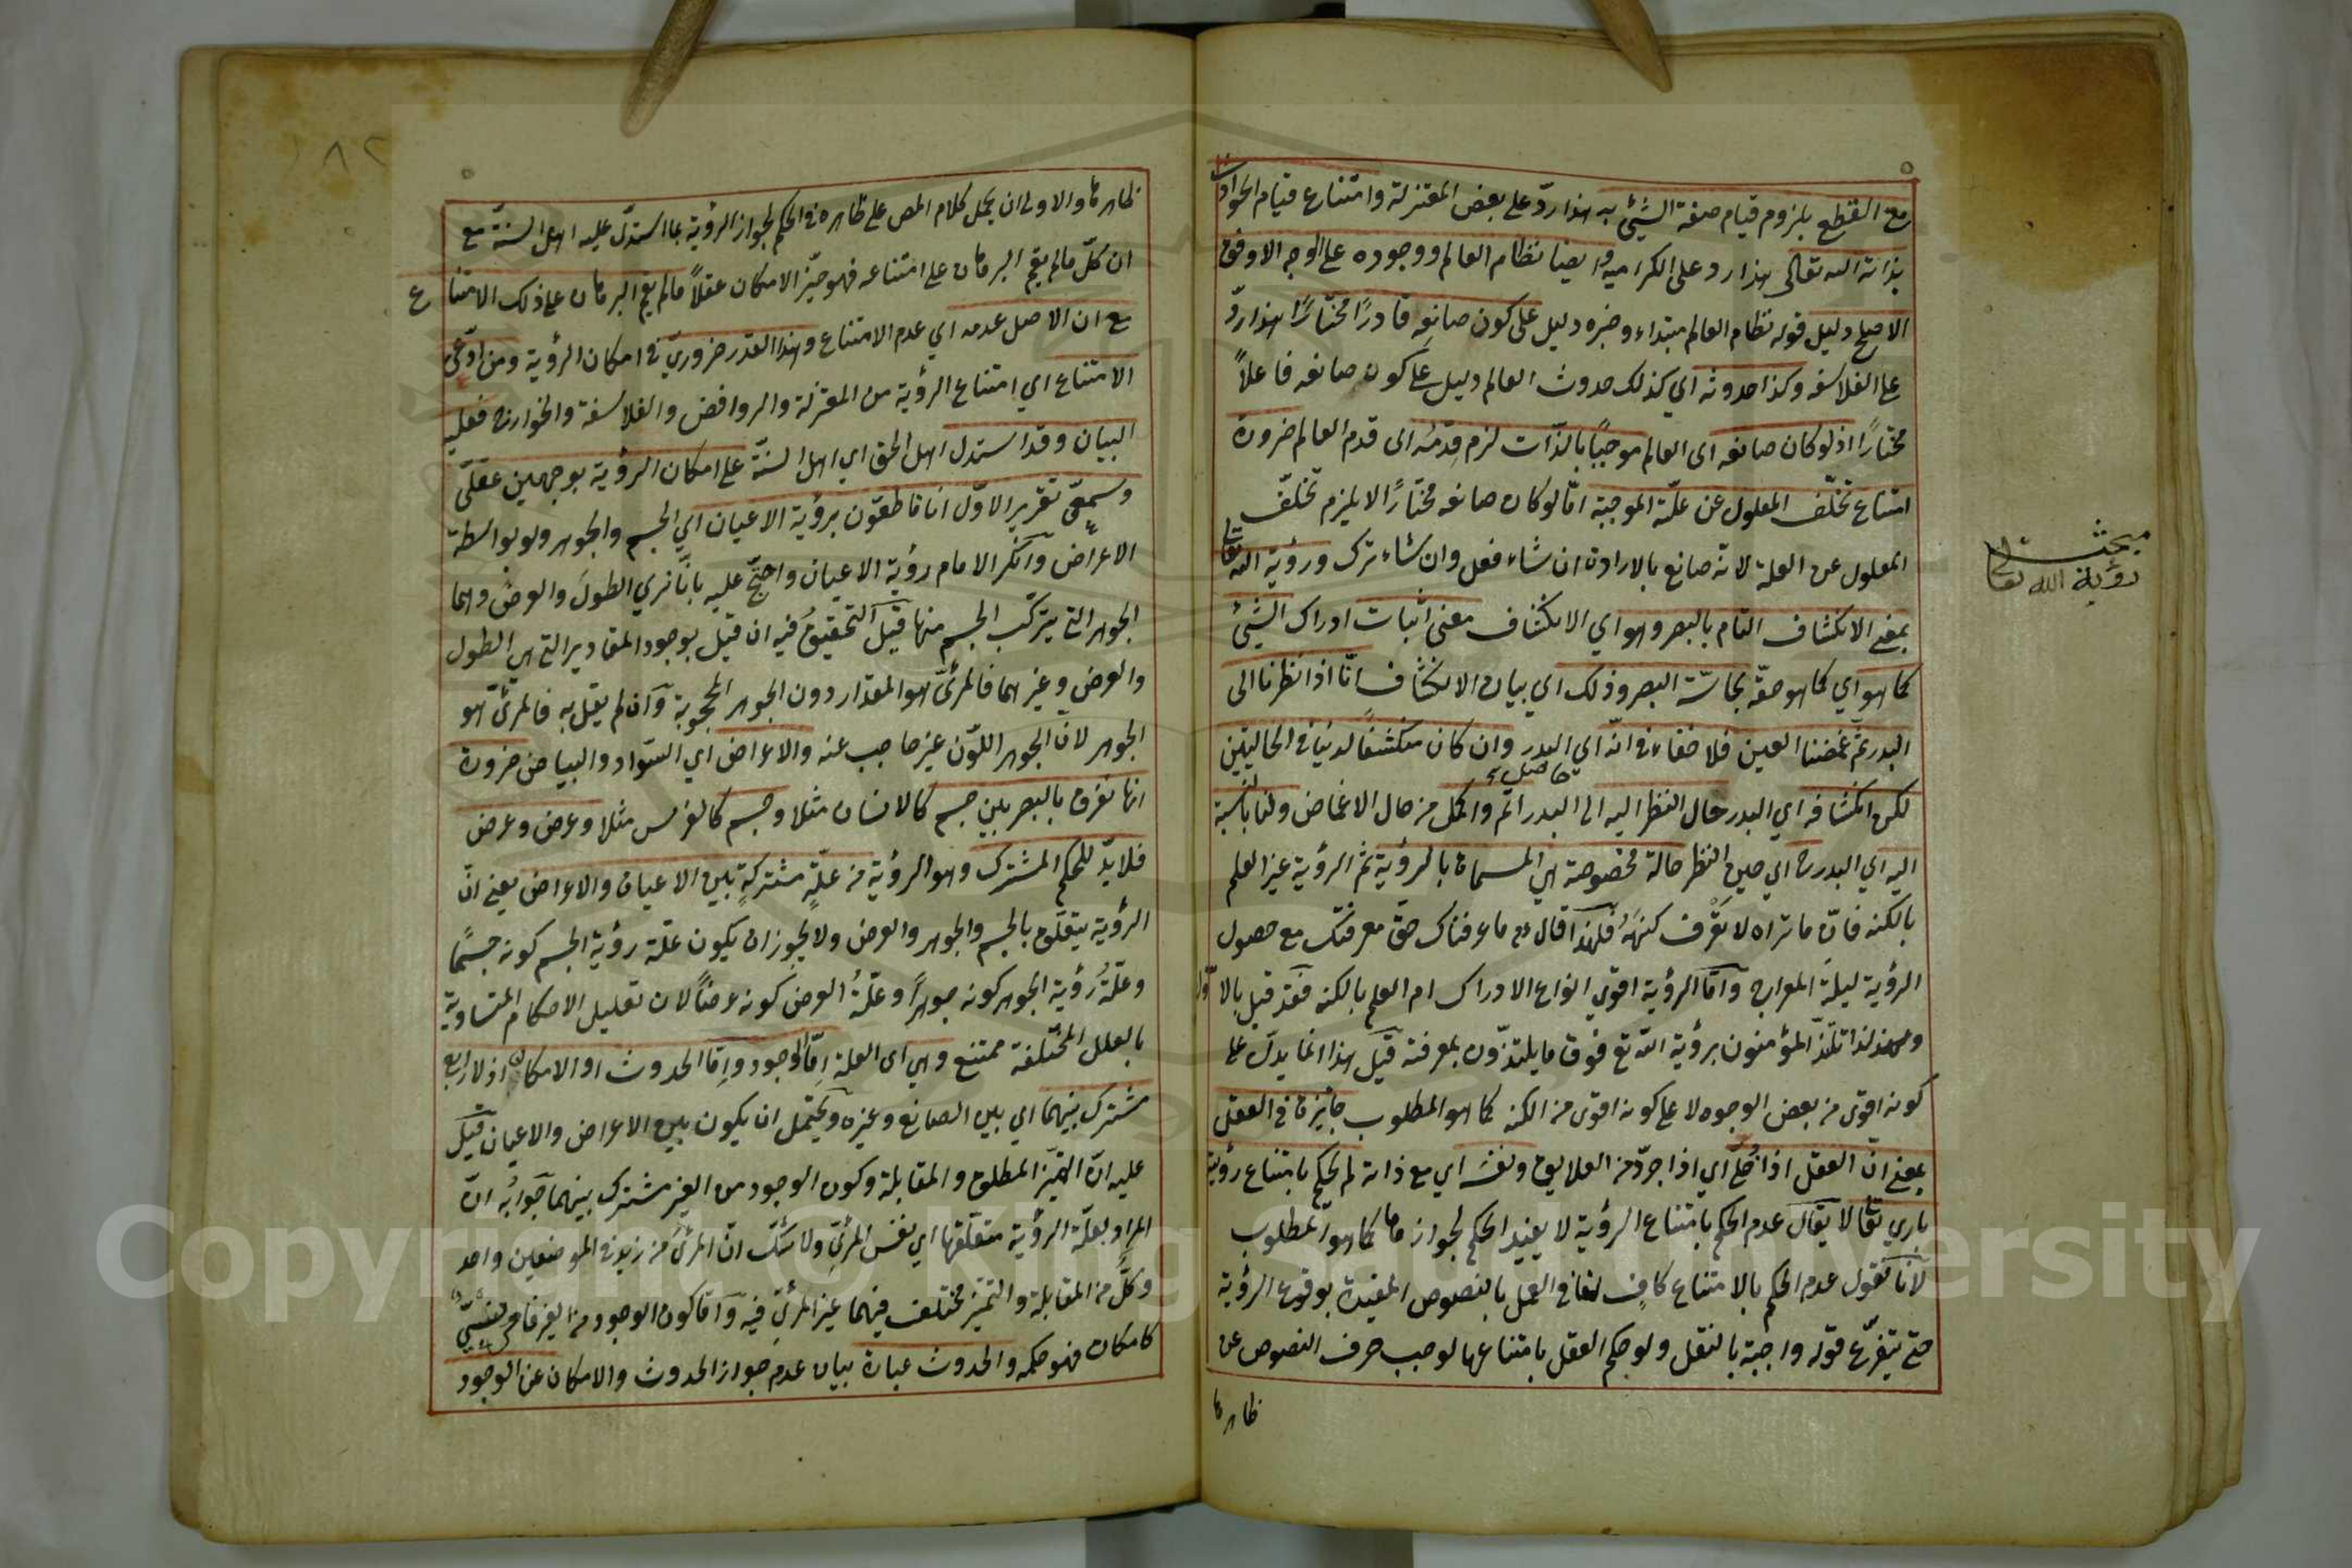 مع القطع بلزوم قيام صفة الشيئ به هذا ردّ على بعض المعتزلة وامتناع قيام الحوادث
بذاته الله تعالى هذا رد على الكرامية وايضا نظام العالم ووجوده على الوجه الاوفق
الاصلح دليل قوله نظام العالم مبتداء وخبره دليل على كون صانعه قادرًا مختارًا هذا ردّ
على الفلاسفه وكذا حدوثه اي كذلك حدوث العالم دليل على كون صانعه فاعلاً
مختارًا اذ لو كان صانعه اى العالم موجبًا بالذّات لزم قدمه اى قدم العالم ضرورة
امتناع تخلّف المعلول عن علّته الموجبة امّا لو كان صانعه مختارًا لا يلزم تخلّف
المعلول عن العلة لانه صانع بالارادة ان شاء فعل وان شاء ترك ورؤية الله تعالى
بمعنى الانكشاف التام بالبصر وهو اي الانكشاف معنى اثبات ادراك الشيئ
كما هو اي كما هو حقّه بحاسّة البصر وذلك اي بيان الانكشاف انّا اذا نظرنا الى
البدر ثمّ غمضنا العين فلا خفاء في انّه اي البدر وان كان منكشفًا لدينا في الحاليتين
لكن انكشافه اي البدر حال النظر اليه الى البدر اتم واكمل من حال الاغماض ولنا بالنسبة
اليه اي البدر ح اي حين النظر حالة مخصوصة هي المسماة بالرؤية ثمّ الرؤية غير العلم
بالكنه فانّ ما تراه لا تعرف كنهه فلهذا قال ما عرفناك حقّ معرفتك مع حصول
الرؤية ليلة المعراج وامّا الرؤية اقوى انواع الادراك ام العلم بالكنه فقد قيل بالاول
ومن لذا تلذّ المؤمنون برؤية الله تع فوق ما يلتذّون بمعرفته قيل هذا انما يدلّ على
كونه اقوى من بعض الوجوه لا على كونه اقوى من الكنه كما هو المطلوب جايزة في العقل
بمعنى انّ العقل اذا خُلّي اي اذا جرّد من العلايق ونفسه اي مع ذاته لم يحكم بامتناع رؤية
باري تعالى لا يقال عدم الحكم بامتناع الرؤية لا يفيد الحكم بجوازها كما هو المطلوب
لأنّا نقول عدم الحكم بالامتناع كافٍ لنا في العمل بالنصوص المفيدة بوقوع الرؤية
حتى يتفرّع قوله واجبة بالنقل ولو حكم العقل بامتناعها لوجب صرف النصوص عن
ظاهرها
مبحث
رؤية الله تعالى
حاصل
ظاهرها والاولى ان يحمل كلام المص على ظاهره في الحكم بجواز الرؤية بما استدلّ عليه اهل السنّة مع
ان كلّ ما لم يقم البرهان على امتناعه فهو حيّز الامكان عقلاً ما لم يقم البرهان على ذلك الامتناع
مع ان الاصل عدمه اي عدم الامتناع وهذا القدر ضروريّ في امكان الرؤية ومن ادّعى
الامتناع اي امتناع الرؤية من المعتزلة والروافض والفلاسفة والخوارج فعليه
البيان وقد استدل اهل الحق اي اهل السنّة على امكان الرؤية بوجهين عقلّى
وسمعىّ تقرير الاوّل انا قاطعون برؤية الاعيان اي الجسم والجوهر ولو بواسطة
الاعراض وانكر الامام رؤية الاعيان واحتجّ عليه بانّا نرى الطول والعرض وهما
الجوهر التى يتركّب الجسم منها قيل التحقيق فيه ان قيل بوجود المقادير التي هي الطول
والعرض وغيرهما فالمرئىّ هو المقدار دون الجوهر المحجوبة وان لم يقل به فالمرئىّ هو
الجوهر لانّ الجوهر اللوّن غير حاجب عنه والاعراض اي السّواد والبياض ضرورة
انا نفرق بالبصر بين جسم كالانسان مثلا وجسم كالفرس مثلا وعرض وعرض
فلا بدّ للحكم المشترك وهو الرؤية من علّةٍ مشتركةٍ بين الاعيان والاعراض يعنى انّ
الرؤية يتعلّق بالجسم والجوهر والعرض ولا يجوز ان يكون علّة رؤية الجسم كونه جسمًا
وعلّةُ رؤية الجوهر كونه جوهرًا وعلّةُ العرض كونه عرضًا لان تعليل الاحكام المتساوية
بالعلل المختلفة ممتنع وهي اى العلة امّا الوجود وامّا الحدوث او الامكان اذ لا رابع
مشترك بينهما اي بين الصانع وغيره ويحتمل ان يكون بين الاعراض والاعيان قيل
عليه انّ التحيّز المطلق والمقابلة وكون الوجود من الغير مشترك بينهما جوابه انّ
المراد بعلّة الرؤية متعلّقها اي نفس المرئىّ ولا شكّ انّ المرئى من زيد في الموضعين واحد
وكلّ من المقابلة والتحيّز مختلف فيهما غير المرئىّ فيه وامّا كون الوجود من الغير
كامكان فهو حكمه والحدوث عبارة بيان عدم جواز الحدوث والامكان عن الوجود
Copyright © King Saud University